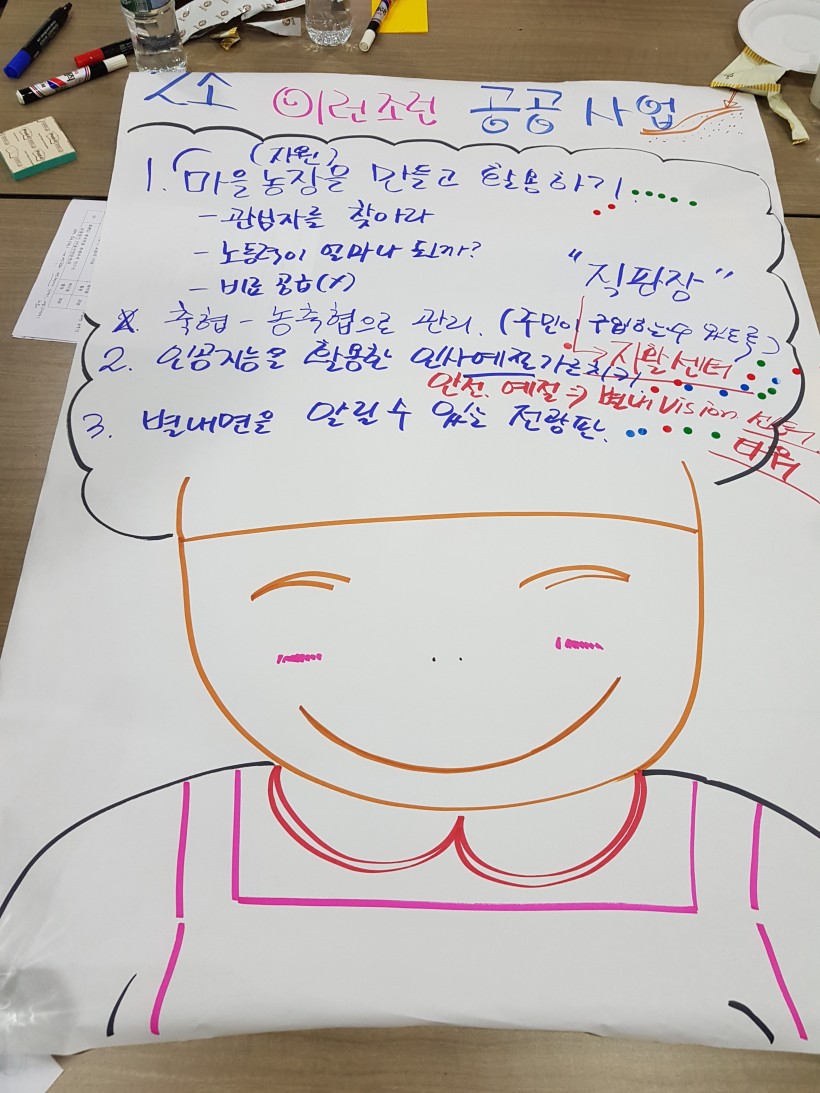 이런조런 공공사업
(자원)
1. 마을농장을 만들고 활용하기
- 관심자를 찾아라
- 노동력이 얼마나 되까?
- 비료 공급(X)
"직판장"
축협 - 농축협으로 관리. (주민이 구입하는수 있도록)
2. 인공지능을 활용한 인사예절가르치기
→ 자활센터
안전. 예절 ⇒ 별내 Vision
타워
3. 별내면을 알릴수 있는 전광판.